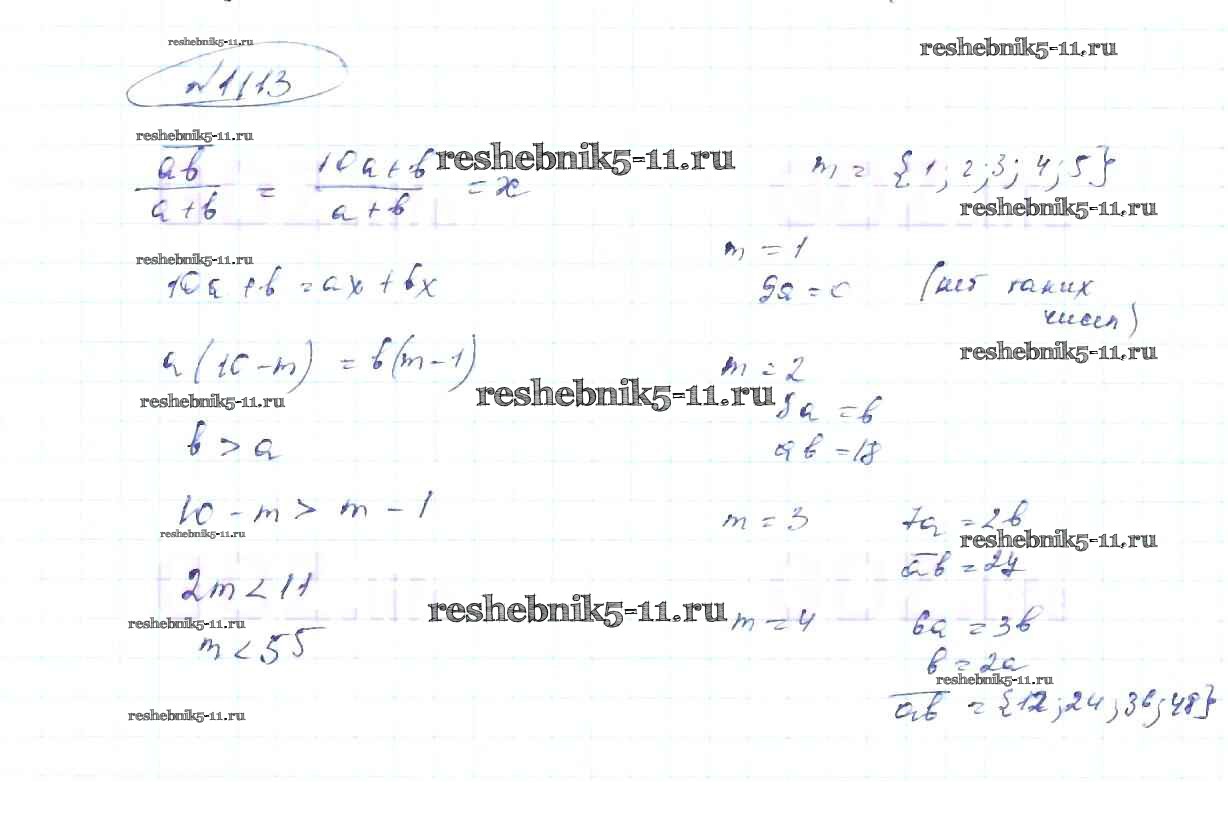 reshebnik5-11.ru
reshebnik5-11.ru
№1113
reshebnik5-11.ru
ab / a+b = 10a+b / a+b = x
reshebnik5-11.ru
m = {1; 2; 3; 4; 5}
reshebnik5-11.ru
reshebnik5-11.ru
10a+b = ax+bx
a(10-m) = b(m-1)
reshebnik5-11.ru
b > a
10-m > m-1
reshebnik5-11.ru
2m < 11
reshebnik5-11.ru
m < 5 5
reshebnik5-11.ru
m = 1
9a = 0 (нет таких
чисел)
reshebnik5-11.ru
m = 2
reshebnik5-11.ru
8a = b
ab = 18
m = 3 7a = 2b
reshebnik5-11.ru
ab = 27
reshebnik5-11.ru
m = 4 6a = 3b
b = 2a
reshebnik5-11.ru
ab = {12; 24; 36; 48}